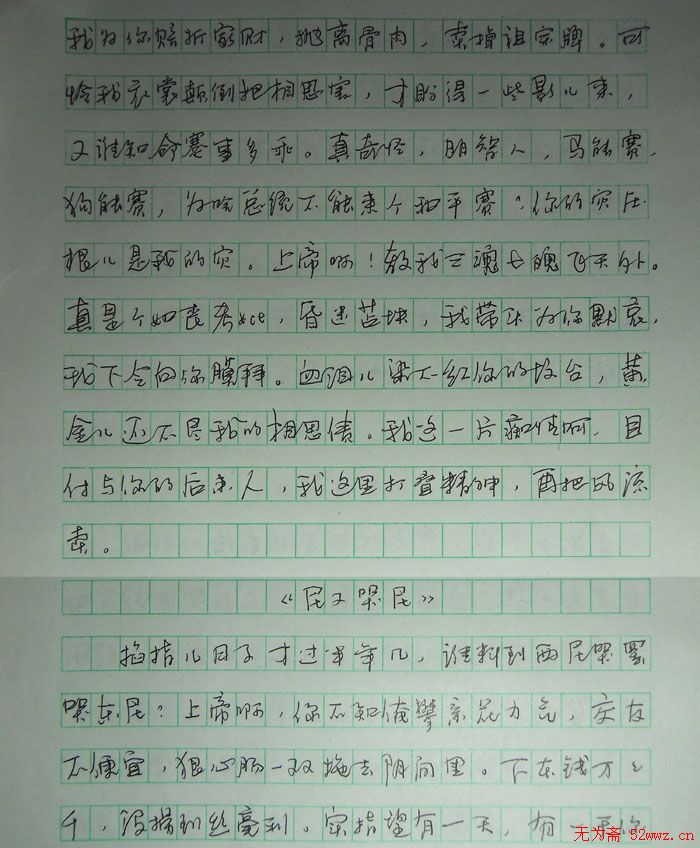 我为你赔折家财，抛离骨肉，卖掉祖宗牌。可
怜我衣裳颠倒把相思害，才盼得一些影儿来，
又谁知命蹇事多乖。真奇怪，明智人，马能赛，
狗能赛，为啥总统不能来个和平赛？你的灾压
根儿是我的灾。上帝啊！教我三魂七魄飞天外。
真是个如丧考妣，昏迷苫块，我带头为你默哀，
我下令向你膜拜。血泪儿染不红你的坟台，黄
金儿还不尽我的相思债。我这一片痴情啊，且
付与你的后来人，我这里打叠精神，再把风流
卖。
《尼又哭尼》
掐指儿日子才过半年几，谁料到西尼哭罢
哭东尼？上帝啊，你不知俺攀亲花力气，交友
不便宜，狠心肠一双拖去阴间里。下本钱万々
千，没捞到丝毫利。实指望有一天，有一天你
无为斋 52wwz.cn